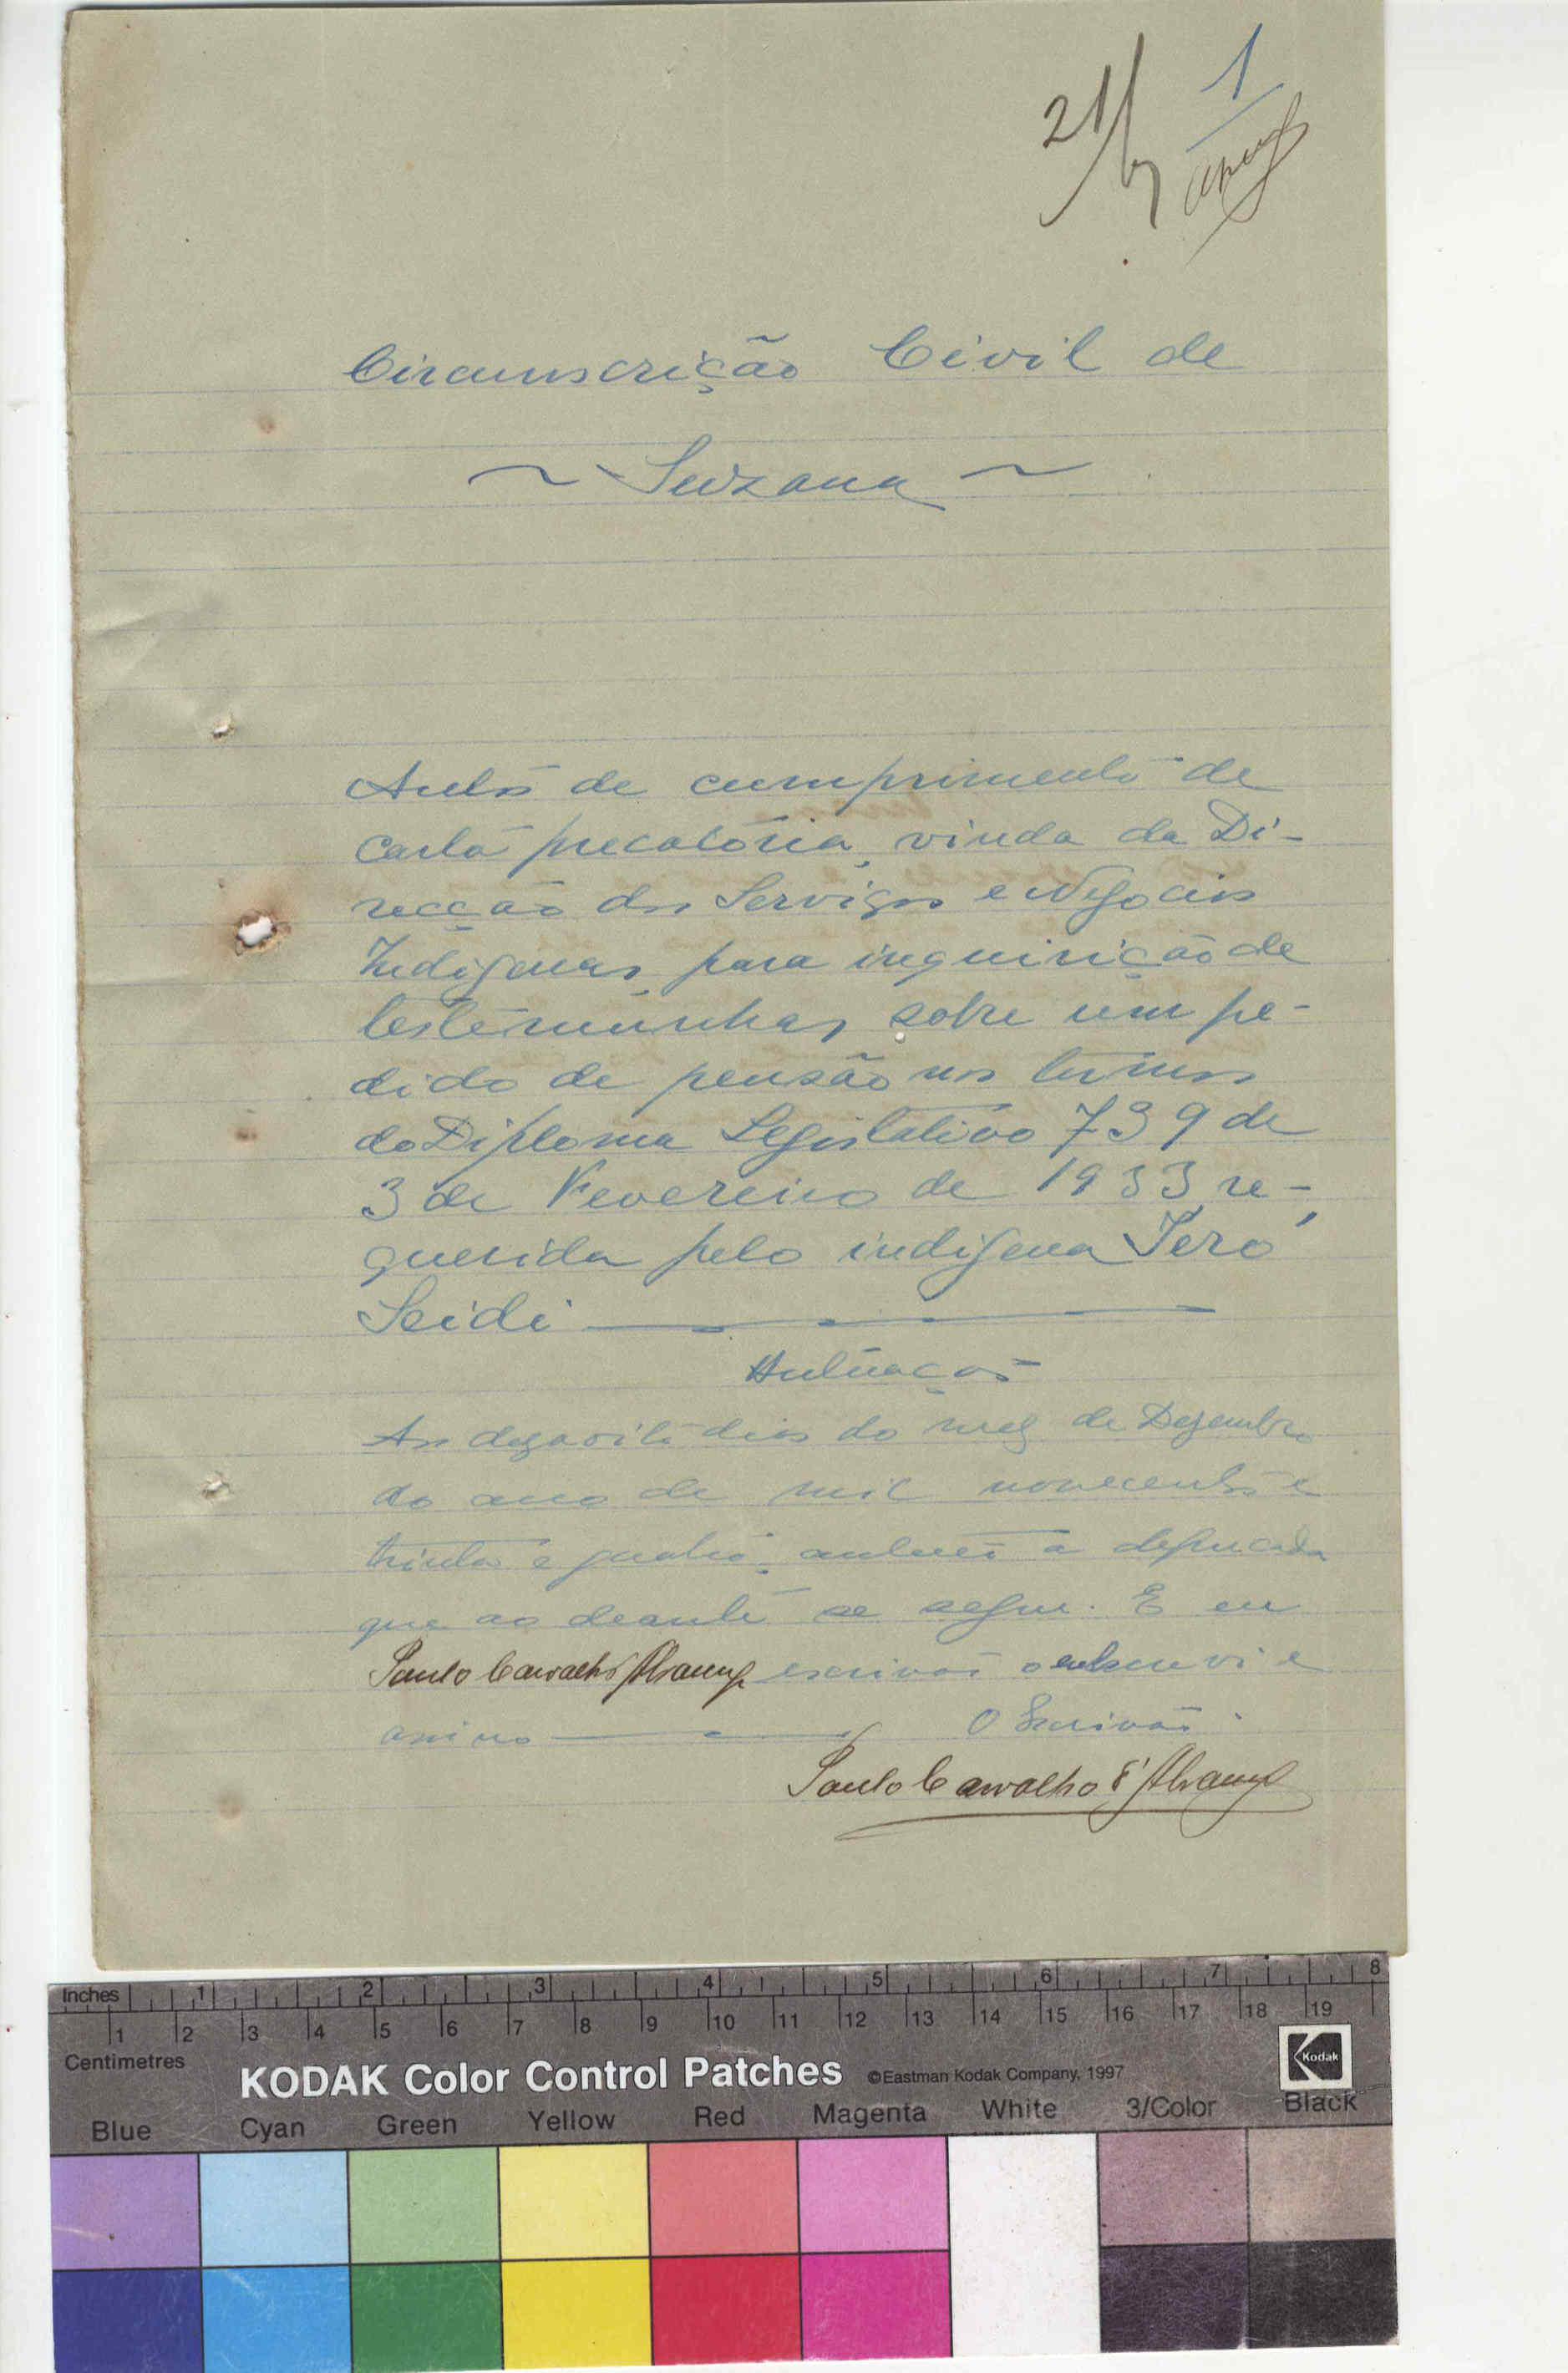 21
1
Circunscrição Civil de
~ Suzana ~
Autos de cumprimento de
carta precatória, vinda da Di-
recção dos Serviços e Negocios
Indigenas, para inquirição de
testemunhas, sobre um pe-
dido de pensão nos termos
do Diploma Legislativo 739 de
3 de Fevereiro de 1933, re-
querida pelo indigena Seró
Seidi
Autuação
Aos dezaoito dias do mez de Dezembro
do ano de mil novecentos e
trinta e quatro, autuei a deprecada
que ao deante se segue. E eu
Paulo Carvalho escrivão o subscrevi e
assino O Escrivão
Paulo Carvalho d'
Inches 1 2 3 4 5 6 7 8
1 2 3 4 5 6 7 8 9 10 11 12 13 14 15 16 17 18 19
Centimetres
KODAK Color Control Patches ©Eastman Kodak Company, 1997 Kodak
Blue Cyan Green Yellow Red Magenta White 3/Color Black